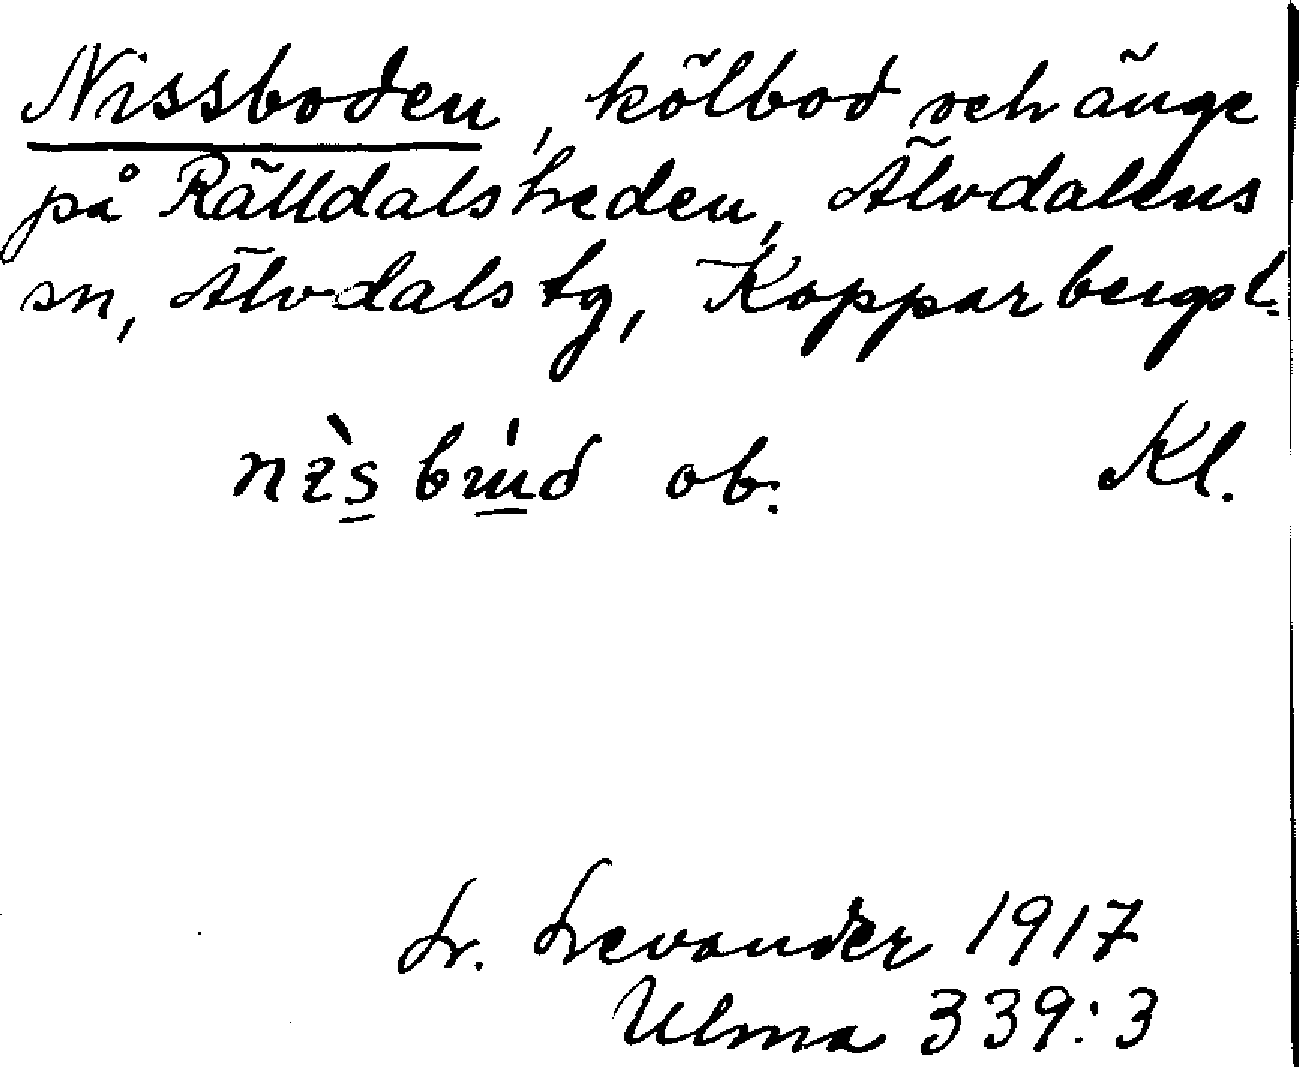 Nissboden, kölbod och änge
på Rälldalsheden, Älvdalens
sn, Älvdals tg, Kopparbergs l.
nɩ̀s bú̱d ob. Kl.
L. Levander 1917
Ulma 339:3